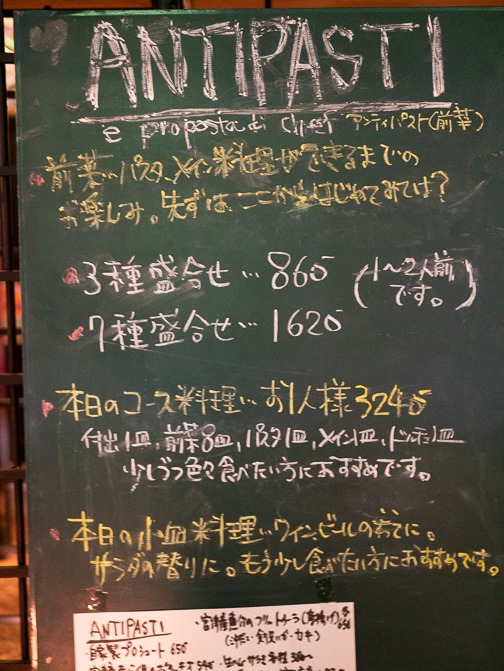 ANTIPASTI
e proposta di chef アンティパスト(前菜)
前菜…パスタ、メイン料理ができるまでの
お楽しみ。先ずは、ここからはじめてみては?
3種盛合せ… 860
(1〜2人前です。)
7種盛合せ… 1620
本日のコース料理… お1人様 3240
付出1皿, 前菜8皿, パスタ1皿, メイン1皿, ドルチェ1皿
少しづつ色々食べたい方におすすめです。
本日の小皿料理… ワイン、ビールのあてに。
サラダの替りに。もう少し食べたい方におすすめです。
ANTIPASTI
自家製プロシュート 650